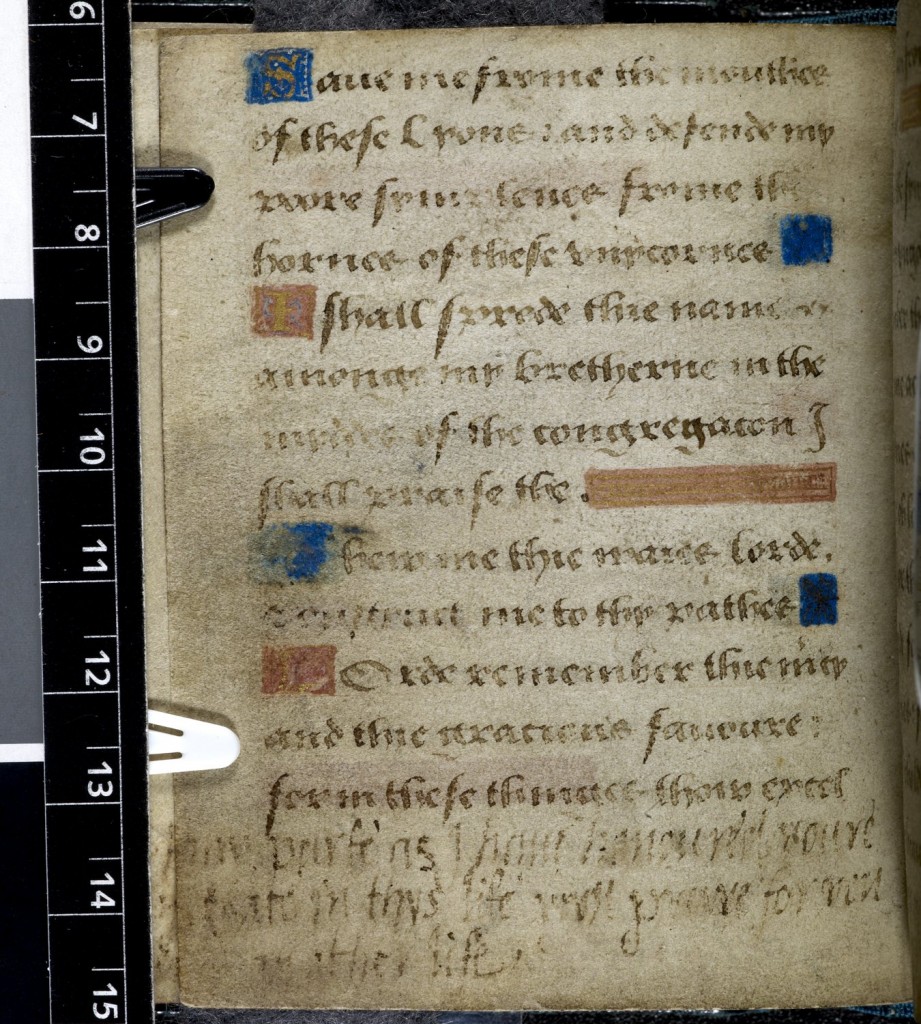 6
7
8
9
10
11
12
13
14
15
Saue me frome the mouthes
of these Lyons: and defende my
poore symplenes frome the
hornes of these vnycornes
I shall sprede thie name
amonge my bretherne in the
myddes of the congregacon J
shall praise the.
Shew me thie waies lorde,
& instruct me to thy pathes
LOrde remember thie mcy
and thie gracious fauoure:
for in these thinges thow excel
as I haue honouryd youre
in thys life wyll praye for you
in other life